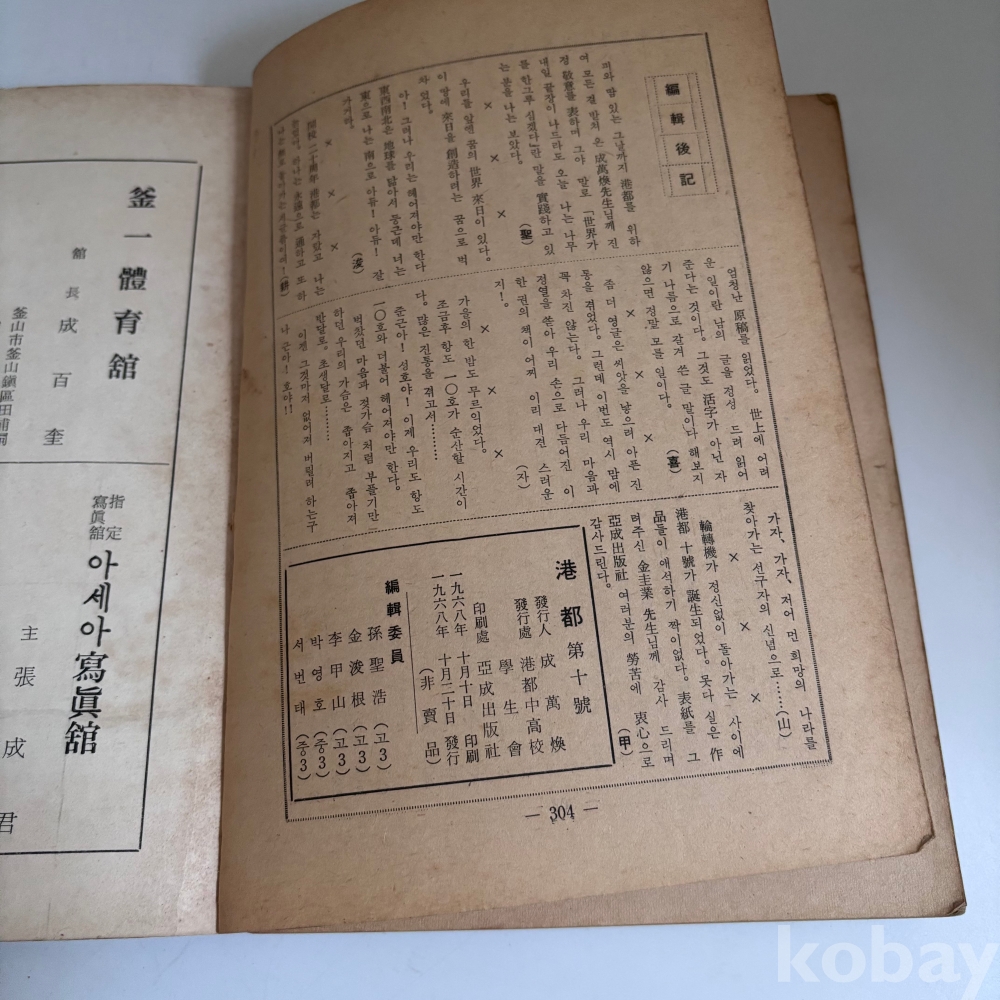 編輯後記
피와 땀 있는 그날까지 港都를 위하
여 모든 걸 바처 온 成萬煥先生님께 진
정 敬意를 表하며 그야 말로 「世界가
내일 끝장이 나드라도 오늘 나는 나무
를 한그루 심겠다」란 말을 實踐하고 있
는 분을 나는 보았다. (聖)
× × ×
우리들 앞엔 꿈의 世界 來日이 있다.
이 땅에 來日을 創造하려는 꿈으로 벅
차 었다.
아! 그러나 우리는 헤어져야만 한다
東西南北은 地球를 닮아서 둥근데 너는
東으로 나는 南으로 아듀! 아듀! 잘
가거라. (浚)
× × ×
開校 二十周年 港都는 자랐고 나는
엄청난 原稿를 읽었다. 世上에 어려
운 일이란 남의 글을 정성 드려 읽어
준다는 것이다. 그것도 活字가 아닌 자
기 나름으로 갈겨 쓴 글 말이다 해보지
않으면 정말 모를 일이다. (喜)
× × ×
좀 더 영글은 씨앗을 낳으려 아픈 진
통을 겪었다. 그런데 이번도 역시 맘에
꼭 차진 않는다. 그러나 우리 마음과
정열을 쏟아 우리 손으로 다듬어진 이
한 권의 책이 어찌 이리 대견 스러운
지!. (자)
× × ×
가을의 한 밤도 무르익었다.
조금후 항도 一〇호가 순산할 시간이
다. 많은 진통을 겪고서……
준근아! 성호야! 이제 우리도 항도
一〇호와 더불어 헤어져야만 한다.
벅찼던 마음과 젖가슴 처럼 부플기만
하던 우리의 가슴은 좁아지고 좁아져
반달로. 초생달로………
이젠 그것마저 없어져 버릴려 하는구
나 근아! 호야!!
가자, 가자, 저어 먼 희망의 나라를
찾아가는 선구자의 신념으로……(山)
× × ×
輪轉機가 정신없이 돌아가는 사이에
港都 十號가 誕生되었다. 못다 실은 作
品들이 애석하기 짝이없다. 表紙를 그
려주신 金圭業 先生님께 감사 드리며
亞成出版社 여러분의 勞苦에 衷心으로
감사드린다. (甲)
港都 第十號
發行人 成萬煥
發行處 港都中高校
學生會
印刷處 亞成出版社
一九六八年 十月十日 印刷
一九六八年 十月二十日 發行
(非賣品)
編輯委員
孫聖浩 (고3)
金浚根 (고3)
李甲山 (고3)
박영호 (중3)
서번태 (중3)
— 304 —
釜一體育舘
舘長 成百奎
釜山市釜山鎭區田浦洞
指定
寫眞舘
아세아寫眞舘
主 張成君
kobay